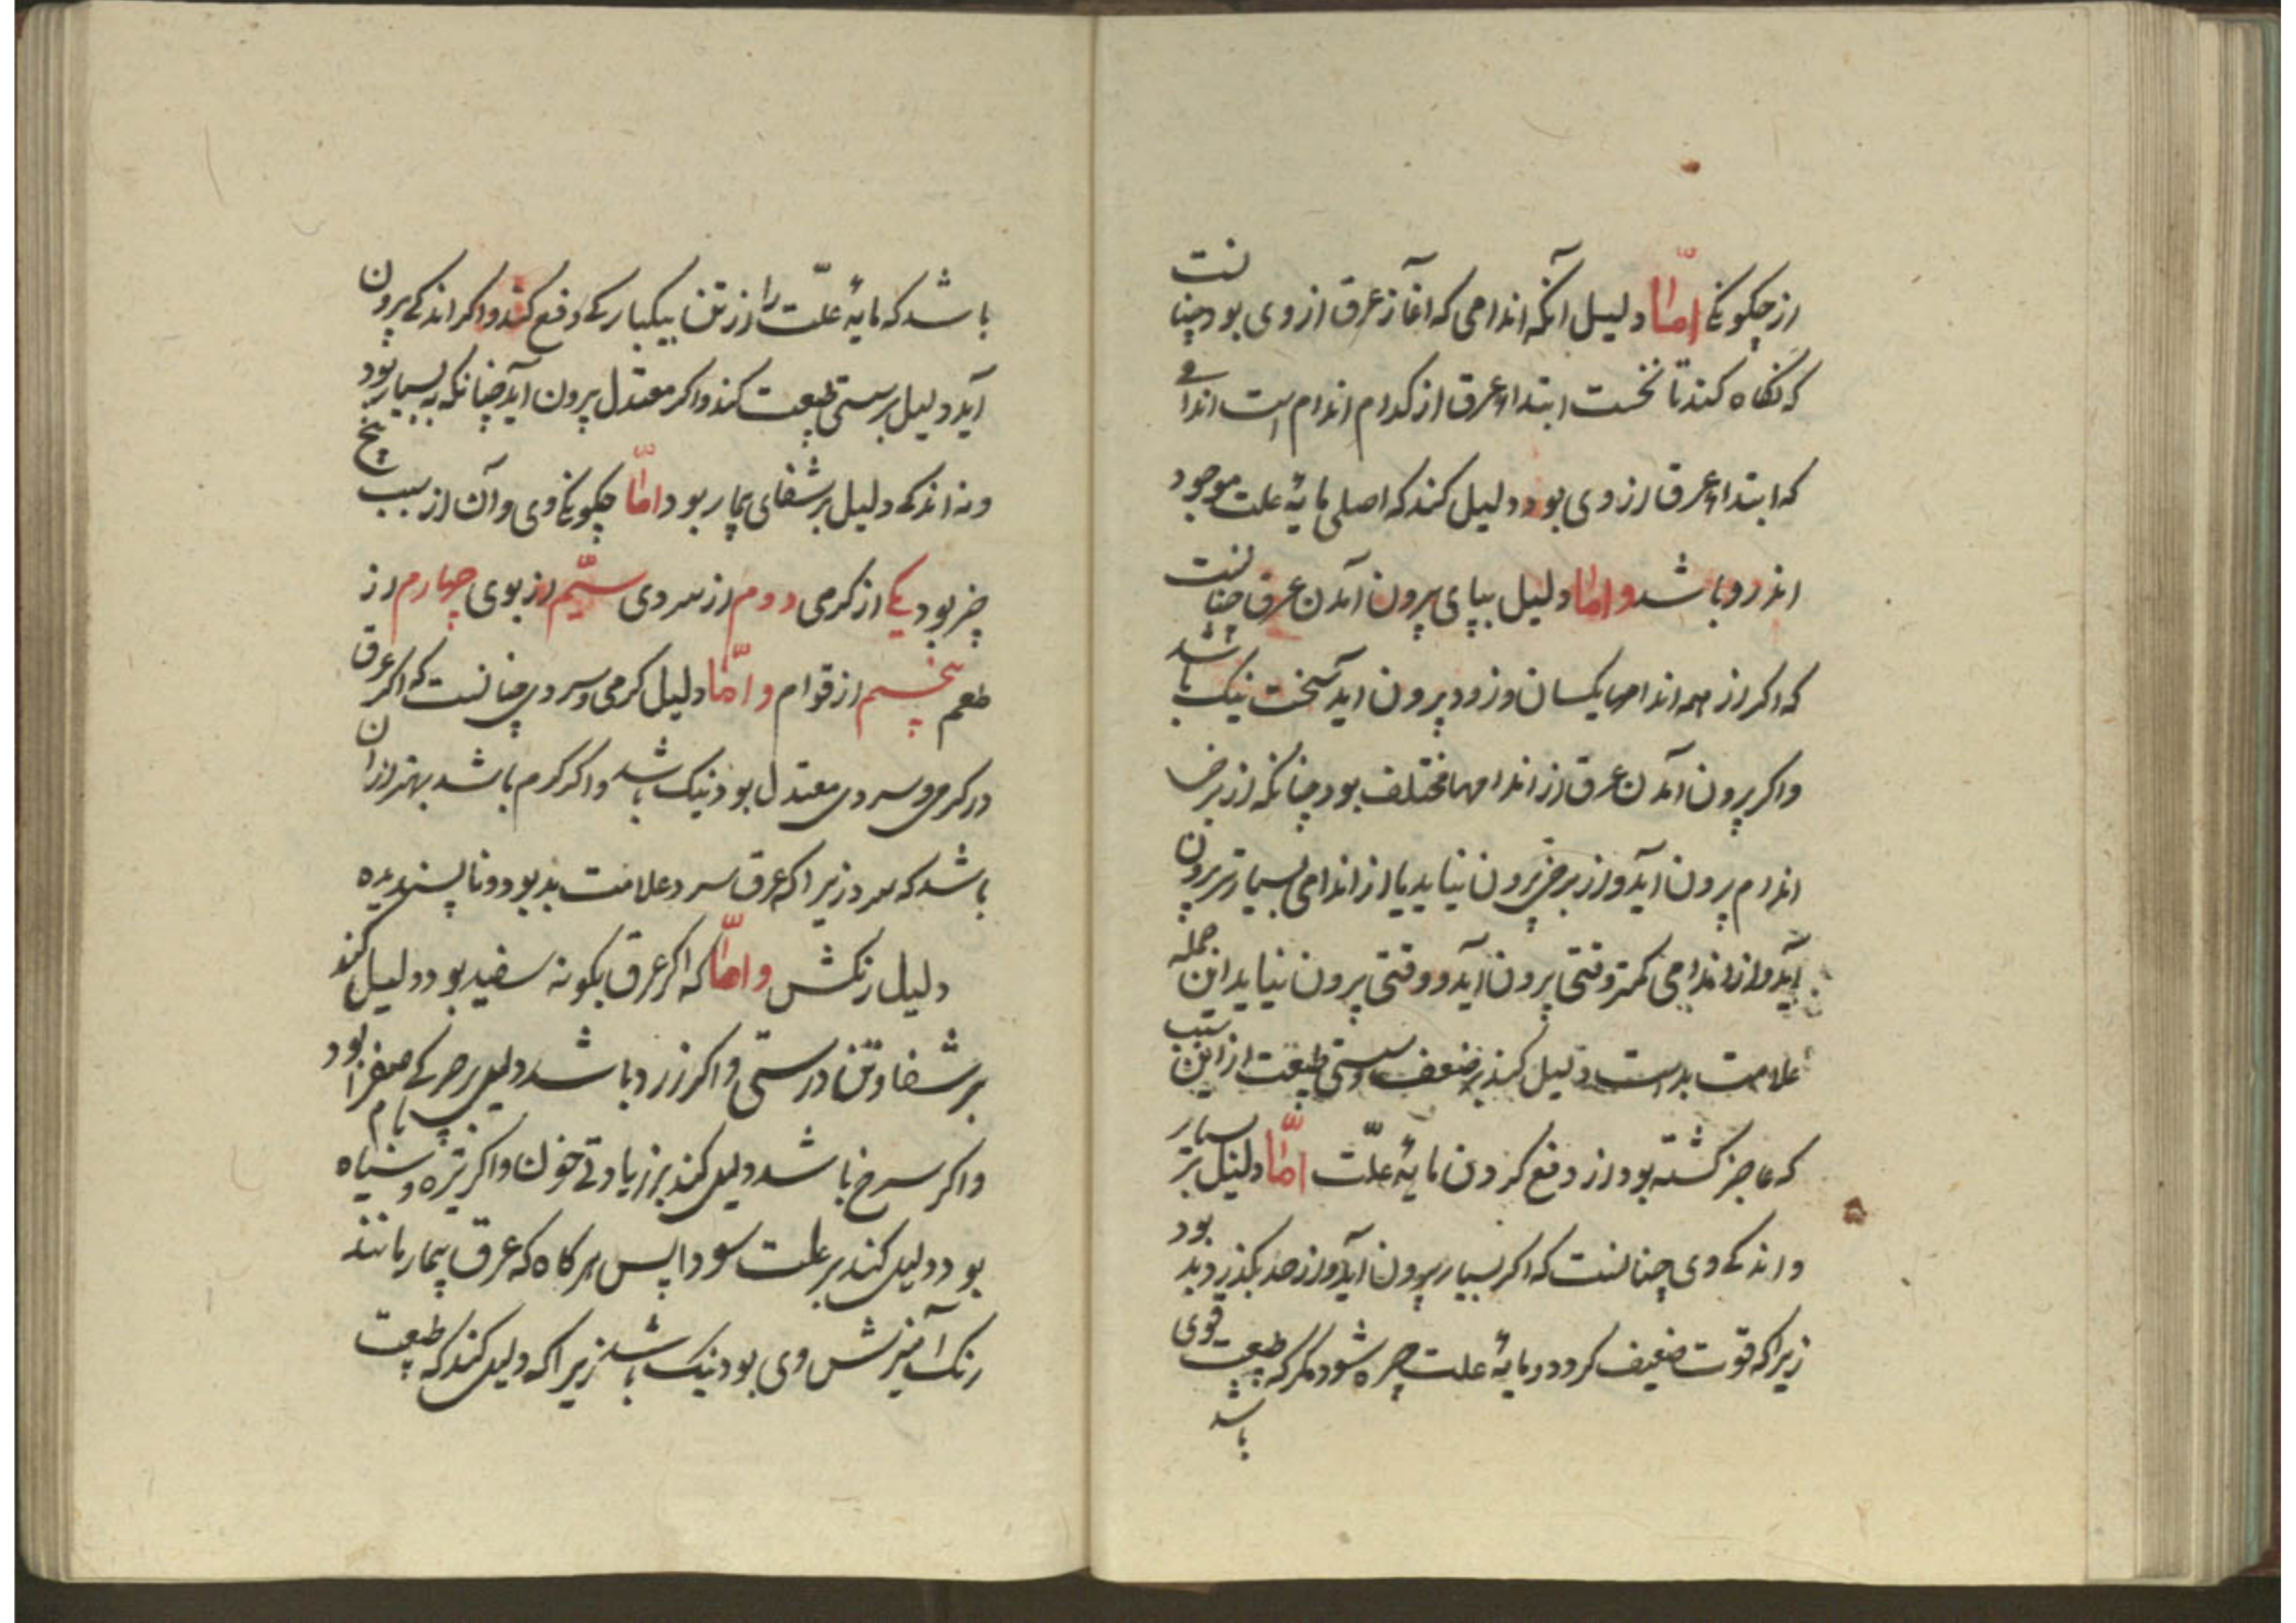 از چکونکی امّا دلیل آنکه اندامی که آغاز عرق از وی بود چنانست
که نکاه کند تا نخست ابتداء عرق از کدام اندام است اندامی
که ابتداء عرق از وی بود دلیل کند که اصلی مایهٔ علت موجود
اندرو باشد و امّا دلیل بپیای پرون آمدن عرق چنانست
که اکر از همه اندامها یکسان و زود پرون آید سخت نیک باشد
واکر پرون آمدن عرق از اندامها مختلف بود چنانکه از برخی
اندام پرون آید و از برخی پرون نیاید یا از اندامی بسیارتر پرون
آید و از اندامی کمتر وقتی پرون آید و وقتی پرون نیاید این جمله
علامت بدست دلیل کند بر ضعف و سستی طبیعت از این سبب
که عاجز کشته بود از دفع کردن مایهٔ علّت امّا دلیل بر بسیار
و اندکی وی چنانست که اکر بسیار پرون آید و از حد بکذرد بد بود
زیراکه قوت ضعیف کردد و مایهٔ علت چیره شود مکر که طبیعت قوی
باشد
باشد که مایهٔ علّت را از تن بیکبارکی دفع کند واکر اندکی پرون
آید دلیل بر سستی طبیعت کند واکر معتدل پرون آید چنانکه نه بسیار بود
و نه اندکی دلیل بر شفای پیمار بود امّا چکونکی وی و آن از سبب پنج
چیز بود یکی از کرمی دوم از سردی سیّم از بوی چهارم از
طعم پنجم از قوام و امّا دلیل کرمی و سردی چنانست که اکر عرق
در کرمی و سردی معتدل بود نیک باشد واکر کرم باشد بهتر از ان
باشد که سرد زیراکه عرق سرد علامت بد بود و ناپسندیده
دلیل رنکش و امّا که اکر عرق بکونه سفید بود دلیل کند
بر شفا و تن درستی واکر زرد باشد دلیل بر حرکی صفرا بود
واکر سرخ باشد دلیل کند بر زیادتی خون واکر تیره و سیاه فام
بود دلیل کند بر علت سودا پس هرکاه که عرق پیمار مانند
رنک آمیزش وی بود نیک باشد زیراکه دلیل کند که طبیعت